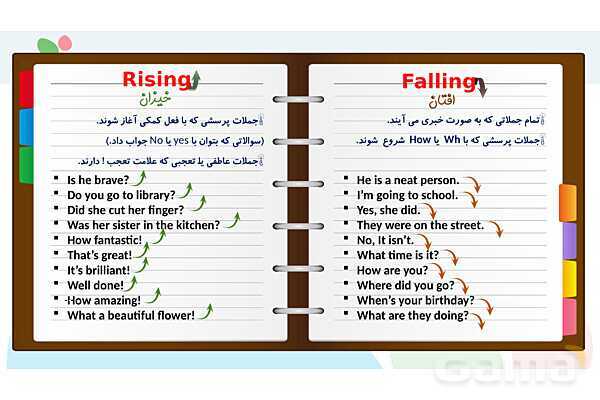 Rising
خیزان
جملات پرسشی که با فعل کمکی آغاز شوند.
(سوالاتی که بتوان با yes یا No جواب داد.)
جملات عاطفی یا تعجبی که علامت تعجب ! دارند.
Is he brave?
Do you go to library?
Did she cut her finger?
Was her sister in the kitchen?
How fantastic!
That's great!
It's brilliant!
Well done!
How amazing!
What a beautiful flower!
Falling
افتان
تمام جملاتی که به صورت خبری می آیند.
جملات پرسشی که با Wh یا How شروع شوند.
He is a neat person.
I'm going to school.
Yes, she did.
They were on the street.
No, It isn't.
What time is it?
How are you?
Where did you go?
When's your birthday?
What are they doing?
Gama